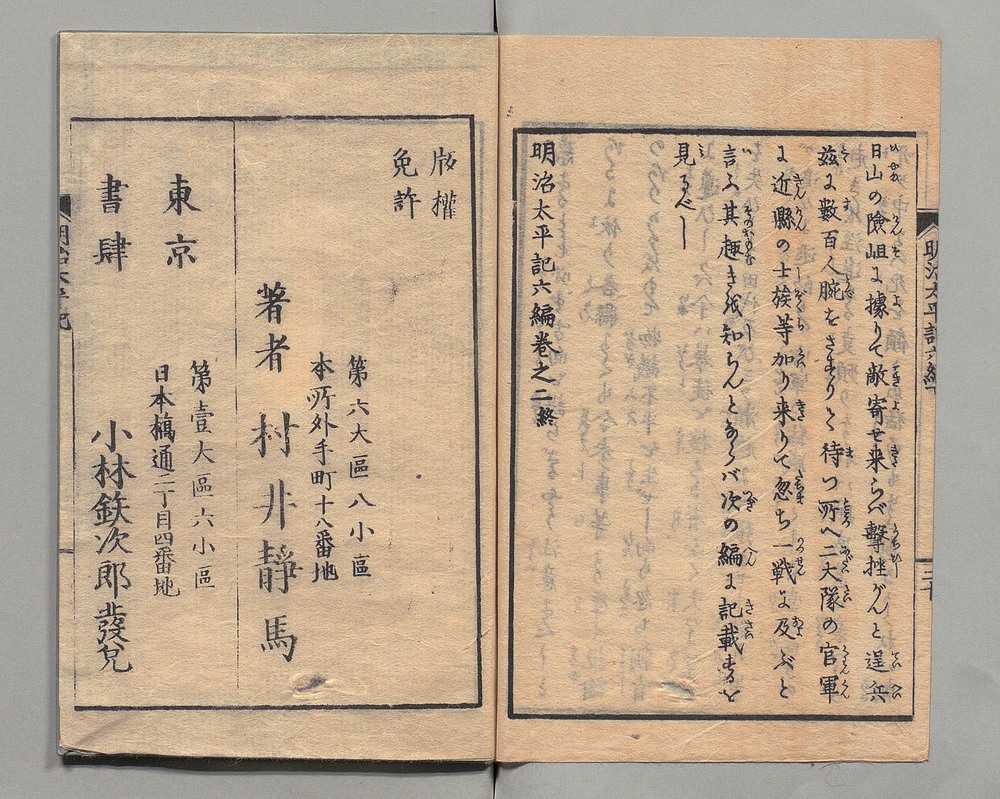 日山の險岨に據りて敵寄せ来らバ擊挫がんと逞兵
茲に數百人腕をさすりて待つ所へ二大隊の官軍
に近縣の士族等加り来りて忽ち一戦に及ぶと
言ふ其趣きを知らんとならバ次の編に記載するを
見るべし
明治太平記六編巻之二終
明治太平記六編下
版權
免許
第六大區八小區
本所外手町十八番地
著者 村井靜馬
東京
書肆
第壹大區六小區
日本橋通二丁目四番地
小林鉄次郎發兌
明治太平記